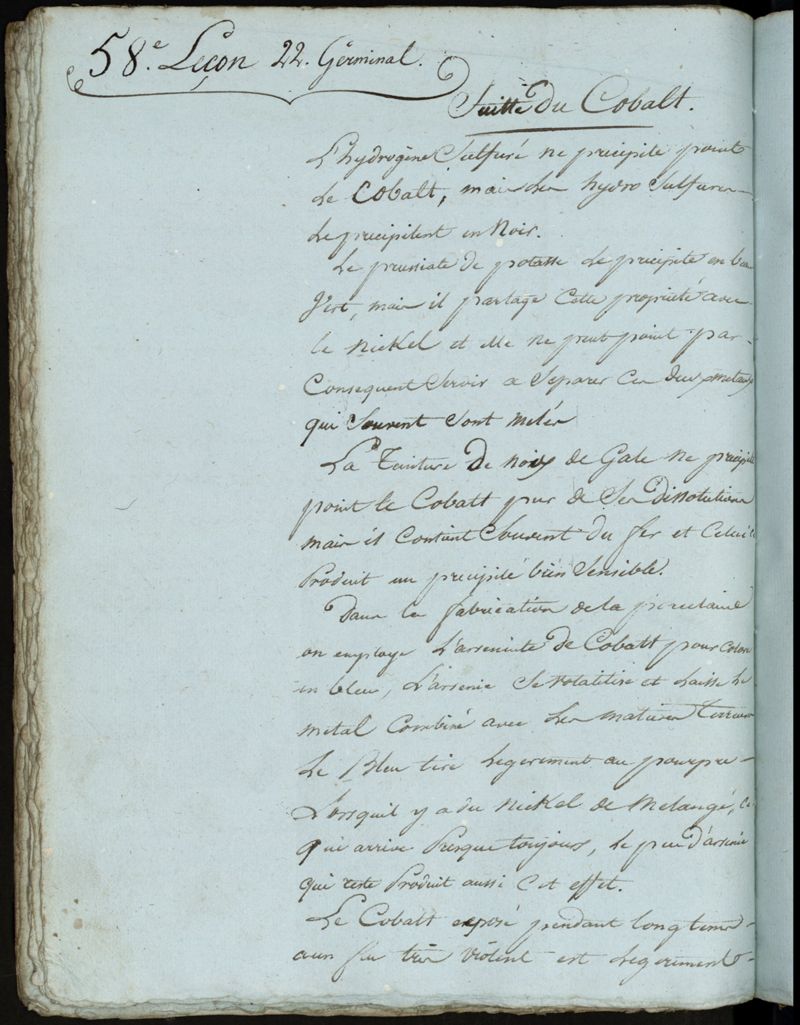 58.e Leçon 22. Germinal.
Suitte du Cobalt.
L'hydrogène Sulfuré ne precipite point
Le Cobalt, mais les hydro Sulfures
Le precipitent en Noir.
Le prussiate de potasse le precipite en beau
Vert, mais il partage cette propriété avec
le Nickel et elle ne peut point par
Consequent Servir a Separer ces deux metaux
qui Souvent Sont melés
La Teinture de noix de Gale ne precipite
point le Cobalt pur de Ses dissolutions
mais il Contient Souvent du fer et Celui ci
Produit un precipité bien Sensible.
Dans la fabrication de la porcelaine
on employe L'arseniate de Cobalt pour Colorer
en bleu, L'arsenic Se volatilise et Laisse le
metal Combiné avec les matieres Terreuses
Le Bleu tire Legerement au pourpre
Lorsquil y a du Nickel de Melangé, Ce
qui arrive Presque toujours, le peu d'arsenic
qui reste Produit aussi Cet effet.
Le Cobalt exposé pendant longtems
a un feu très violent est Legerement